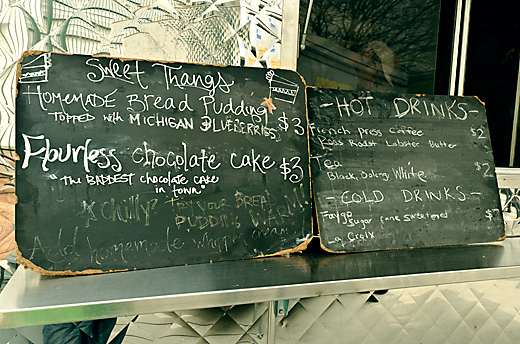 Sweet Thangs
Homemade Bread Pudding
Topped with Michigan Blueberries $3
Flourless chocolate cake $3
"the BADDEST chocolate cake
in town"
* chilly? Try your BREAD
PUDDING WARM!
Add homemade whipped cream
-HOT DRINKS-
French press coffee $2
Roast Lobster Butter
Tea $2
Black, Oolong, White
-COLD DRINKS-
Faygo
sugar cane sweetened
La Croix